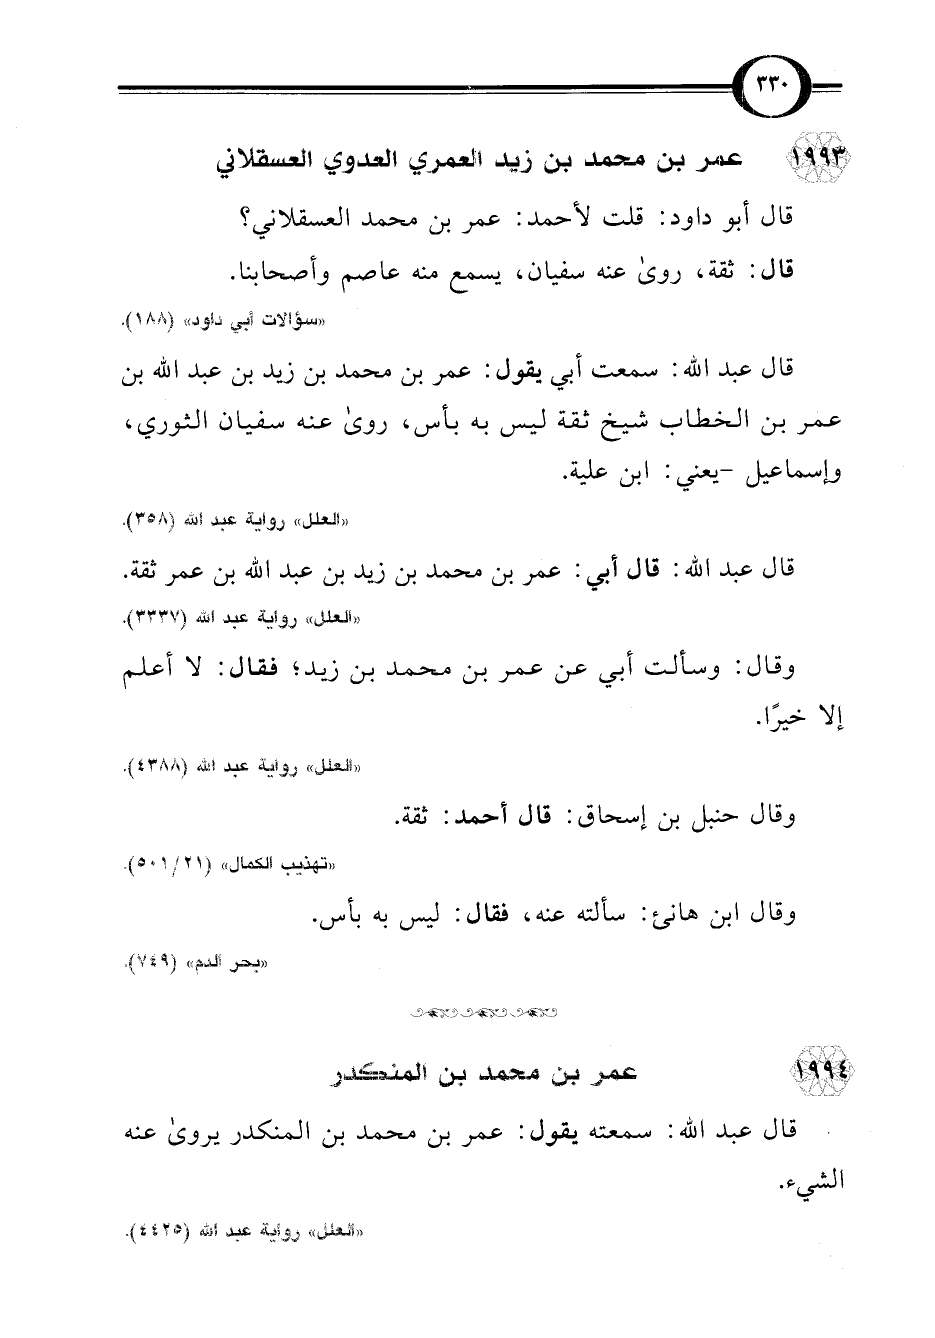 ٣٣٠
١٩٩٣ عمر بن محمد بن زيد العمري العدوي العسقلاني
قال أبو داود: قلت لأحمد: عمر بن محمد العسقلاني؟
قال: ثقة، روىٰ عنه سفيان، يسمع منه عاصم وأصحابنا.
«سؤالات أبي داود» (١٨٨).
قال عبد الله: سمعت أبي يقول: عمر بن محمد بن زيد بن عبد الله بن
عمر بن الخطاب شيخ ثقة ليس به بأس، روىٰ عنه سفيان الثوري،
وإسماعيل -يعني: ابن علية.
«العلل» رواية عبد الله (٣٥٨).
قال عبد الله: قال أبي: عمر بن محمد بن زيد بن عبد الله بن عمر ثقة.
«العلل» رواية عبد الله (٣٣٣٧).
وقال: وسألت أبي عن عمر بن محمد بن زيد؛ فقال: لا أعلم
إلا خيرًا.
«العلل» رواية عبد الله (٤٣٨٨).
وقال حنبل بن إسحاق: قال أحمد: ثقة.
«تهذيب الكمال» (٢١/ ٥٠١).
وقال ابن هانئ: سألته عنه، فقال: ليس به بأس.
«بحر الدم» (٧٤٩).
١٩٩٤ عمر بن محمد بن المنكدر
قال عبد الله: سمعته يقول: عمر بن محمد بن المنكدر يروىٰ عنه
الشيء.
«العلل» رواية عبد الله (٤٤٢٥).